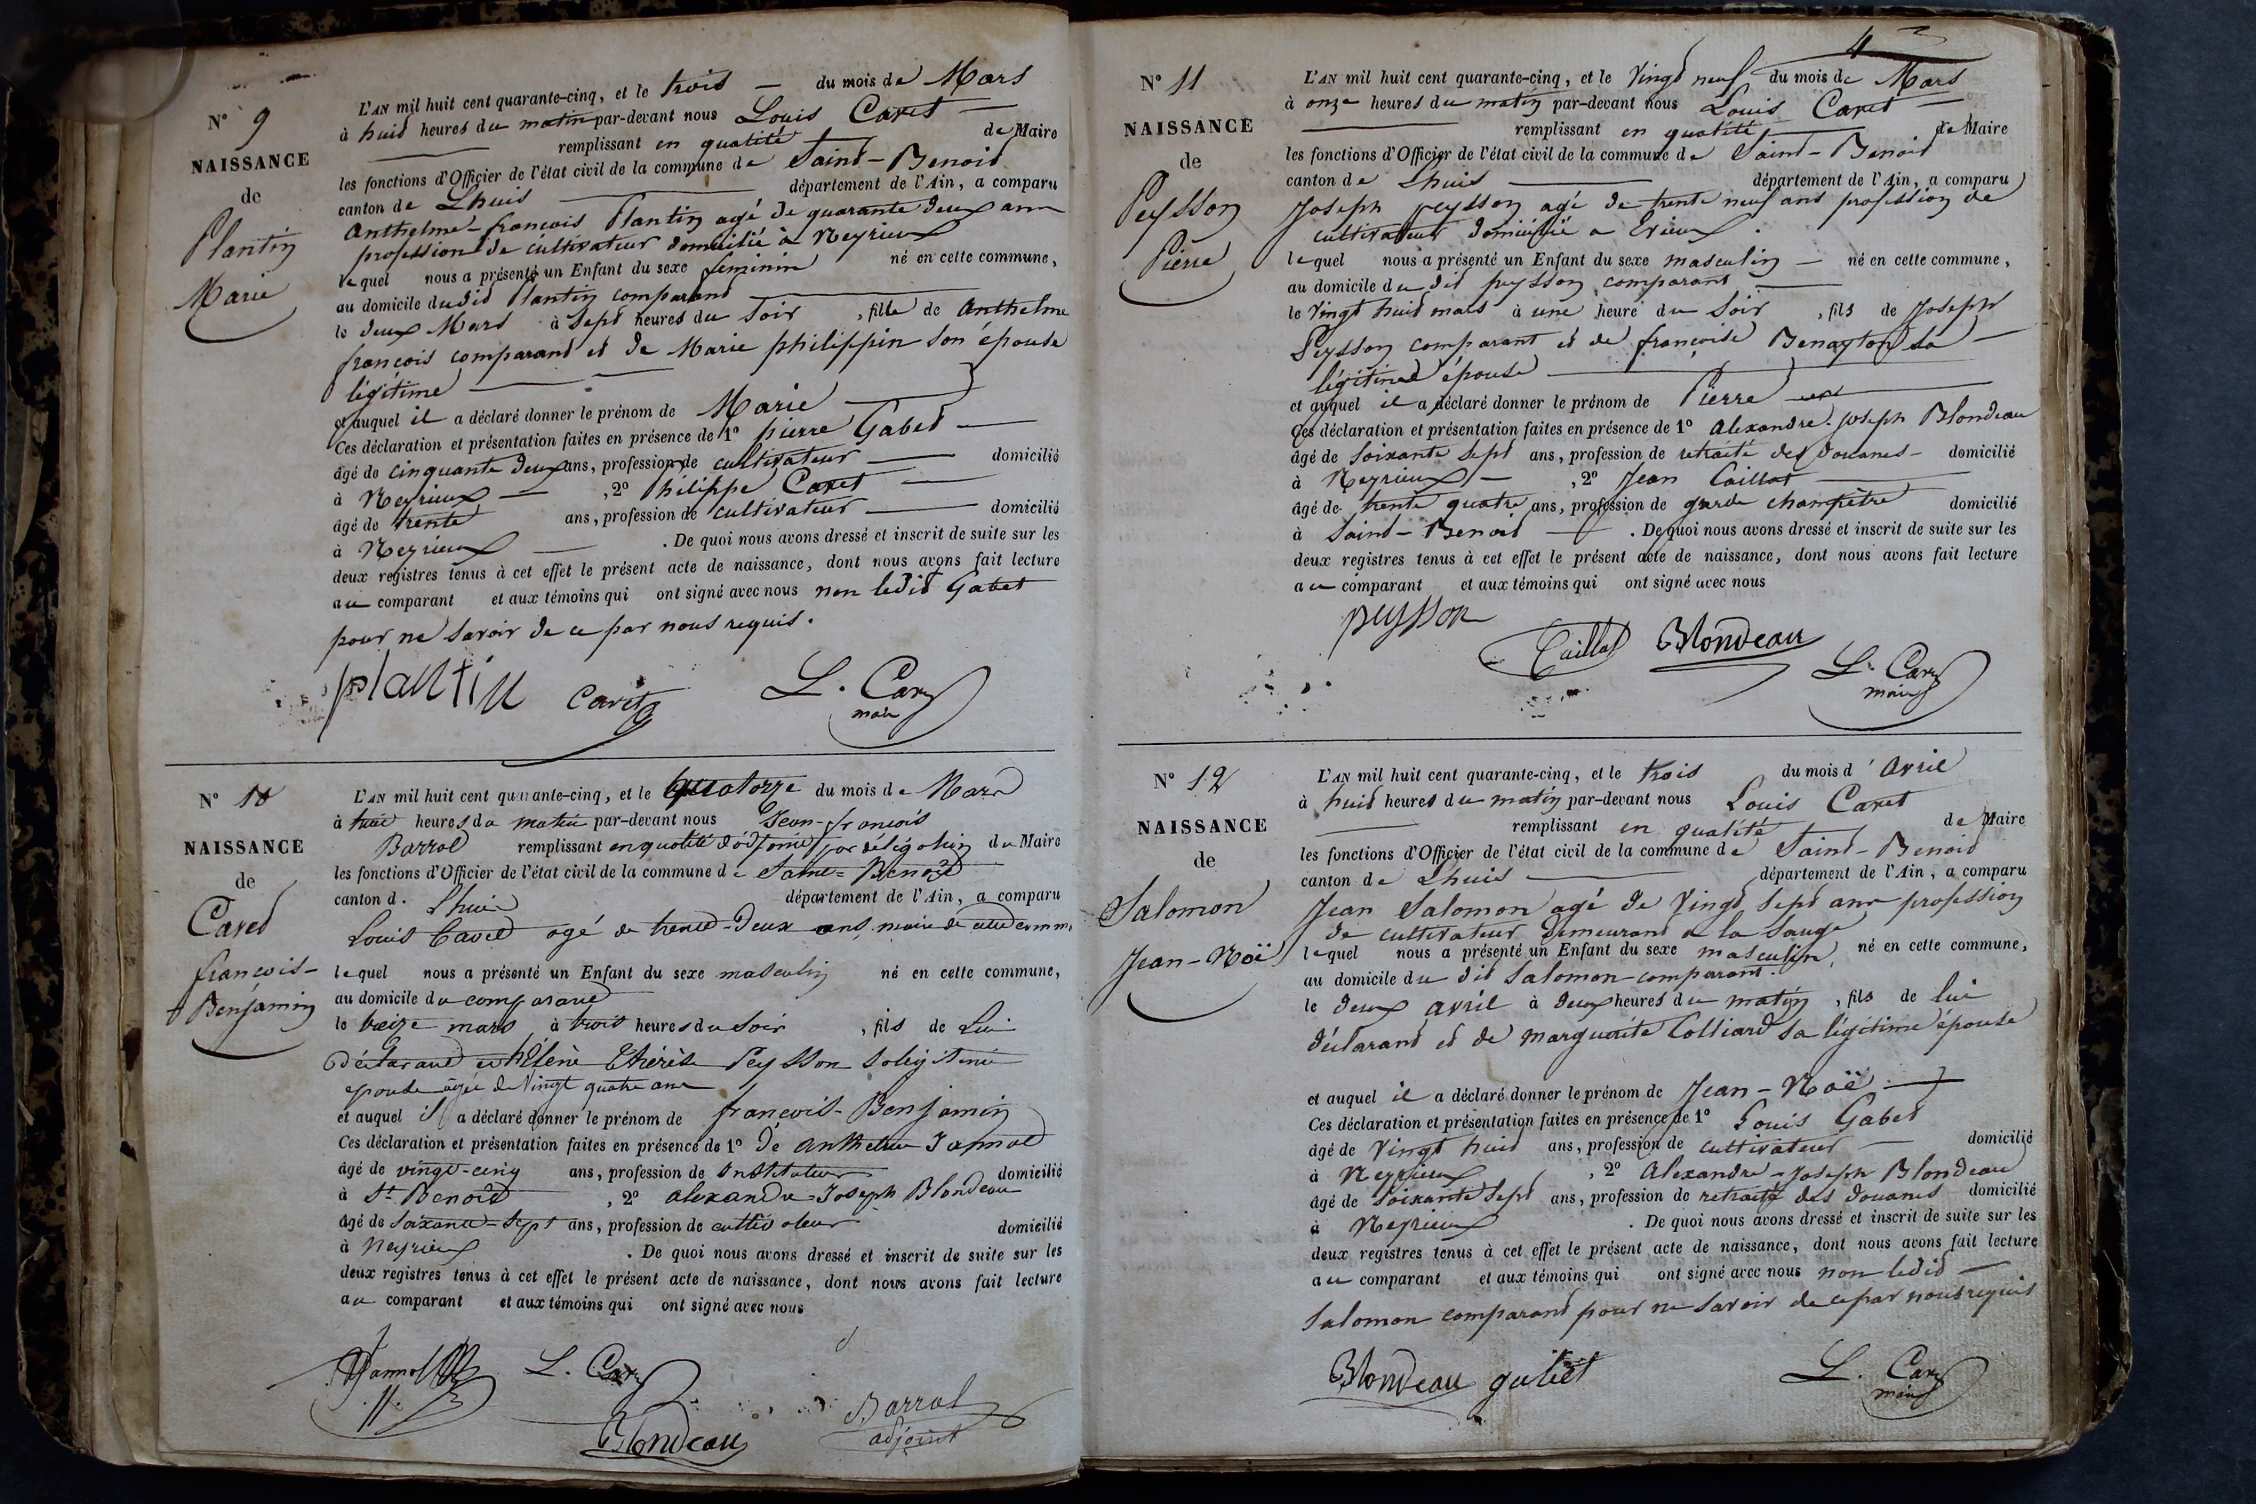 N° 9
NAISSANCE
de
Plantin
Marie
L'AN mil huit cent quarante-cinq, et le trois — du mois de Mars
à huit heures du matin par-devant nous Louis Caret
remplissant en qualité de Maire
les fonctions d'Officier de l'état civil de la commune de Saint-Benoit
canton de Lhuis département de l'Ain, a comparu
Anthelme-françois Plantin agé de quarante deux ans
profession de cultivateur domicilié à Neyrieux
lequel nous a présenté un Enfant du sexe feminin né en cette commune,
au domicile dudit Plantin comparant
le deux Mars à Sept heures du Soir, fille de Anthelme
françois comparant et de Marie philippin son épouse
légitime
et auquel il a déclaré donner le prénom de Marie
Ces déclaration et présentation faites en présence de 1° pierre Gabet —
âgé de cinquante deux ans, profession de cultivateur domicilié
à Neyrieux — , 2° Philippe Caret
âgé de trente ans, profession de cultivateur domicilié
à Neyrieux — . De quoi nous avons dressé et inscrit de suite sur les
deux registres tenus à cet effet le présent acte de naissance, dont nous avons fait lecture
au comparant et aux témoins qui ont signé avec nous non ledit Gabet
pour ne savoir de ce par nous requis.
plantin caret L. Caret
maire
N° 10
NAISSANCE
de
Caret
françois-
Benjamin
L'AN mil huit cent quarante-cinq, et le quatorze du mois de Mars
à heures du matin par-devant nous Jean-françois
Barral remplissant en qualité d'adjoint par délégation du Maire
les fonctions d'Officier de l'état civil de la commune de Saint-Benoit
canton d. Lhuis département de l'Ain, a comparu
Louis Caret agé de trente-deux ans, maire de cette comm.
lequel nous a présenté un Enfant du sexe masculin né en cette commune,
au domicile du comparant
le treize mars à trois heures du Soir, fils de Lui
Déclarant et hélène thérèse Peysson sa légitime
epouse agée de Vingt quatre ans
et auquel il a déclaré donner le prénom de françois-Benjamin
Ces déclaration et présentation faites en présence de 1° De anthelme Jannot
âgé de vingt-cinq ans, profession de Instituteur domicilié
à St Benoît , 2° alexandre Joseph Blondeau
âgé de Soixante-Sept ans, profession de cultivateur domicilié
à Neyrieux . De quoi nous avons dressé et inscrit de suite sur les
deux registres tenus à cet effet le présent acte de naissance, dont nous avons fait lecture
au comparant et aux témoins qui ont signé avec nous
Jannot L. Caret
Blondeau Barral
adjoint
N° 11
NAISSANCE
de
Peysson
Pierre
L'AN mil huit cent quarante-cinq, et le Vingt neuf du mois de Mars
à onze heures du matin par-devant nous Louis Caret
remplissant en qualité de Maire
les fonctions d'Officier de l'état civil de la commune de Saint-Benoit
canton de Lhuis département de l'Ain, a comparu
Joseph peysson agé de trente neuf ans profession de
cultivateur domicilié a Evieux.
lequel nous a présenté un Enfant du sexe masculin — né en cette commune,
au domicile du dit peysson comparant
le Vingt huit mars à une heure du Soir, fils de Joseph
Peysson comparant et de françoise Benayton sa —
légitime épouse
et auquel il a déclaré donner le prénom de Pierre
Ces déclaration et présentation faites en présence de 1° Alexandre-Joseph Blondeau
âgé de Soixante Sept ans, profession de retraité des Douanes — domicilié
à Neyrieux — , 2° Jean Caillat
âgé de trente quatre ans, profession de garde champêtre domicilié
à Saint-Benoit — . De quoi nous avons dressé et inscrit de suite sur les
deux registres tenus à cet effet le présent acte de naissance, dont nous avons fait lecture
au comparant et aux témoins qui ont signé avec nous
peysson
Caillat Blondeau L. Caret
maire
N° 12
NAISSANCE
de
Salomon
Jean-Noë
L'AN mil huit cent quarante-cinq, et le trois du mois d'Avril
à huit heures du matin par-devant nous Louis Caret
remplissant en qualité de Maire
les fonctions d'Officier de l'état civil de la commune de Saint-Benoit
canton de Lhuis département de l'Ain, a comparu
Jean Salomon agé de Vingt Sept ans profession
de cultivateur demeurant a la Sauge
lequel nous a présenté un Enfant du sexe masculin, né en cette commune,
au domicile du dit Salomon comparant.
le deux avril à deux heures du matin, fils de lui
déclarant et de marguerite Colliard sa légitime épouse
et auquel il a déclaré donner le prénom de Jean-Noë
Ces déclaration et présentation faites en présence de 1° Louis Gabet
âgé de Vingt huit ans, profession de cultivateur domicilié
à Neyrieux , 2° Alexandre-Joseph Blondeau
âgé de Soixante Sept ans, profession de retraité des douanes domicilié
à Neyrieux . De quoi nous avons dressé et inscrit de suite sur les
deux registres tenus à cet effet le présent acte de naissance, dont nous avons fait lecture
au comparant et aux témoins qui ont signé avec nous non ledit —
Salomon comparant pour ne savoir de ce par nous requis
Blondeau gabet L. Caret
maire